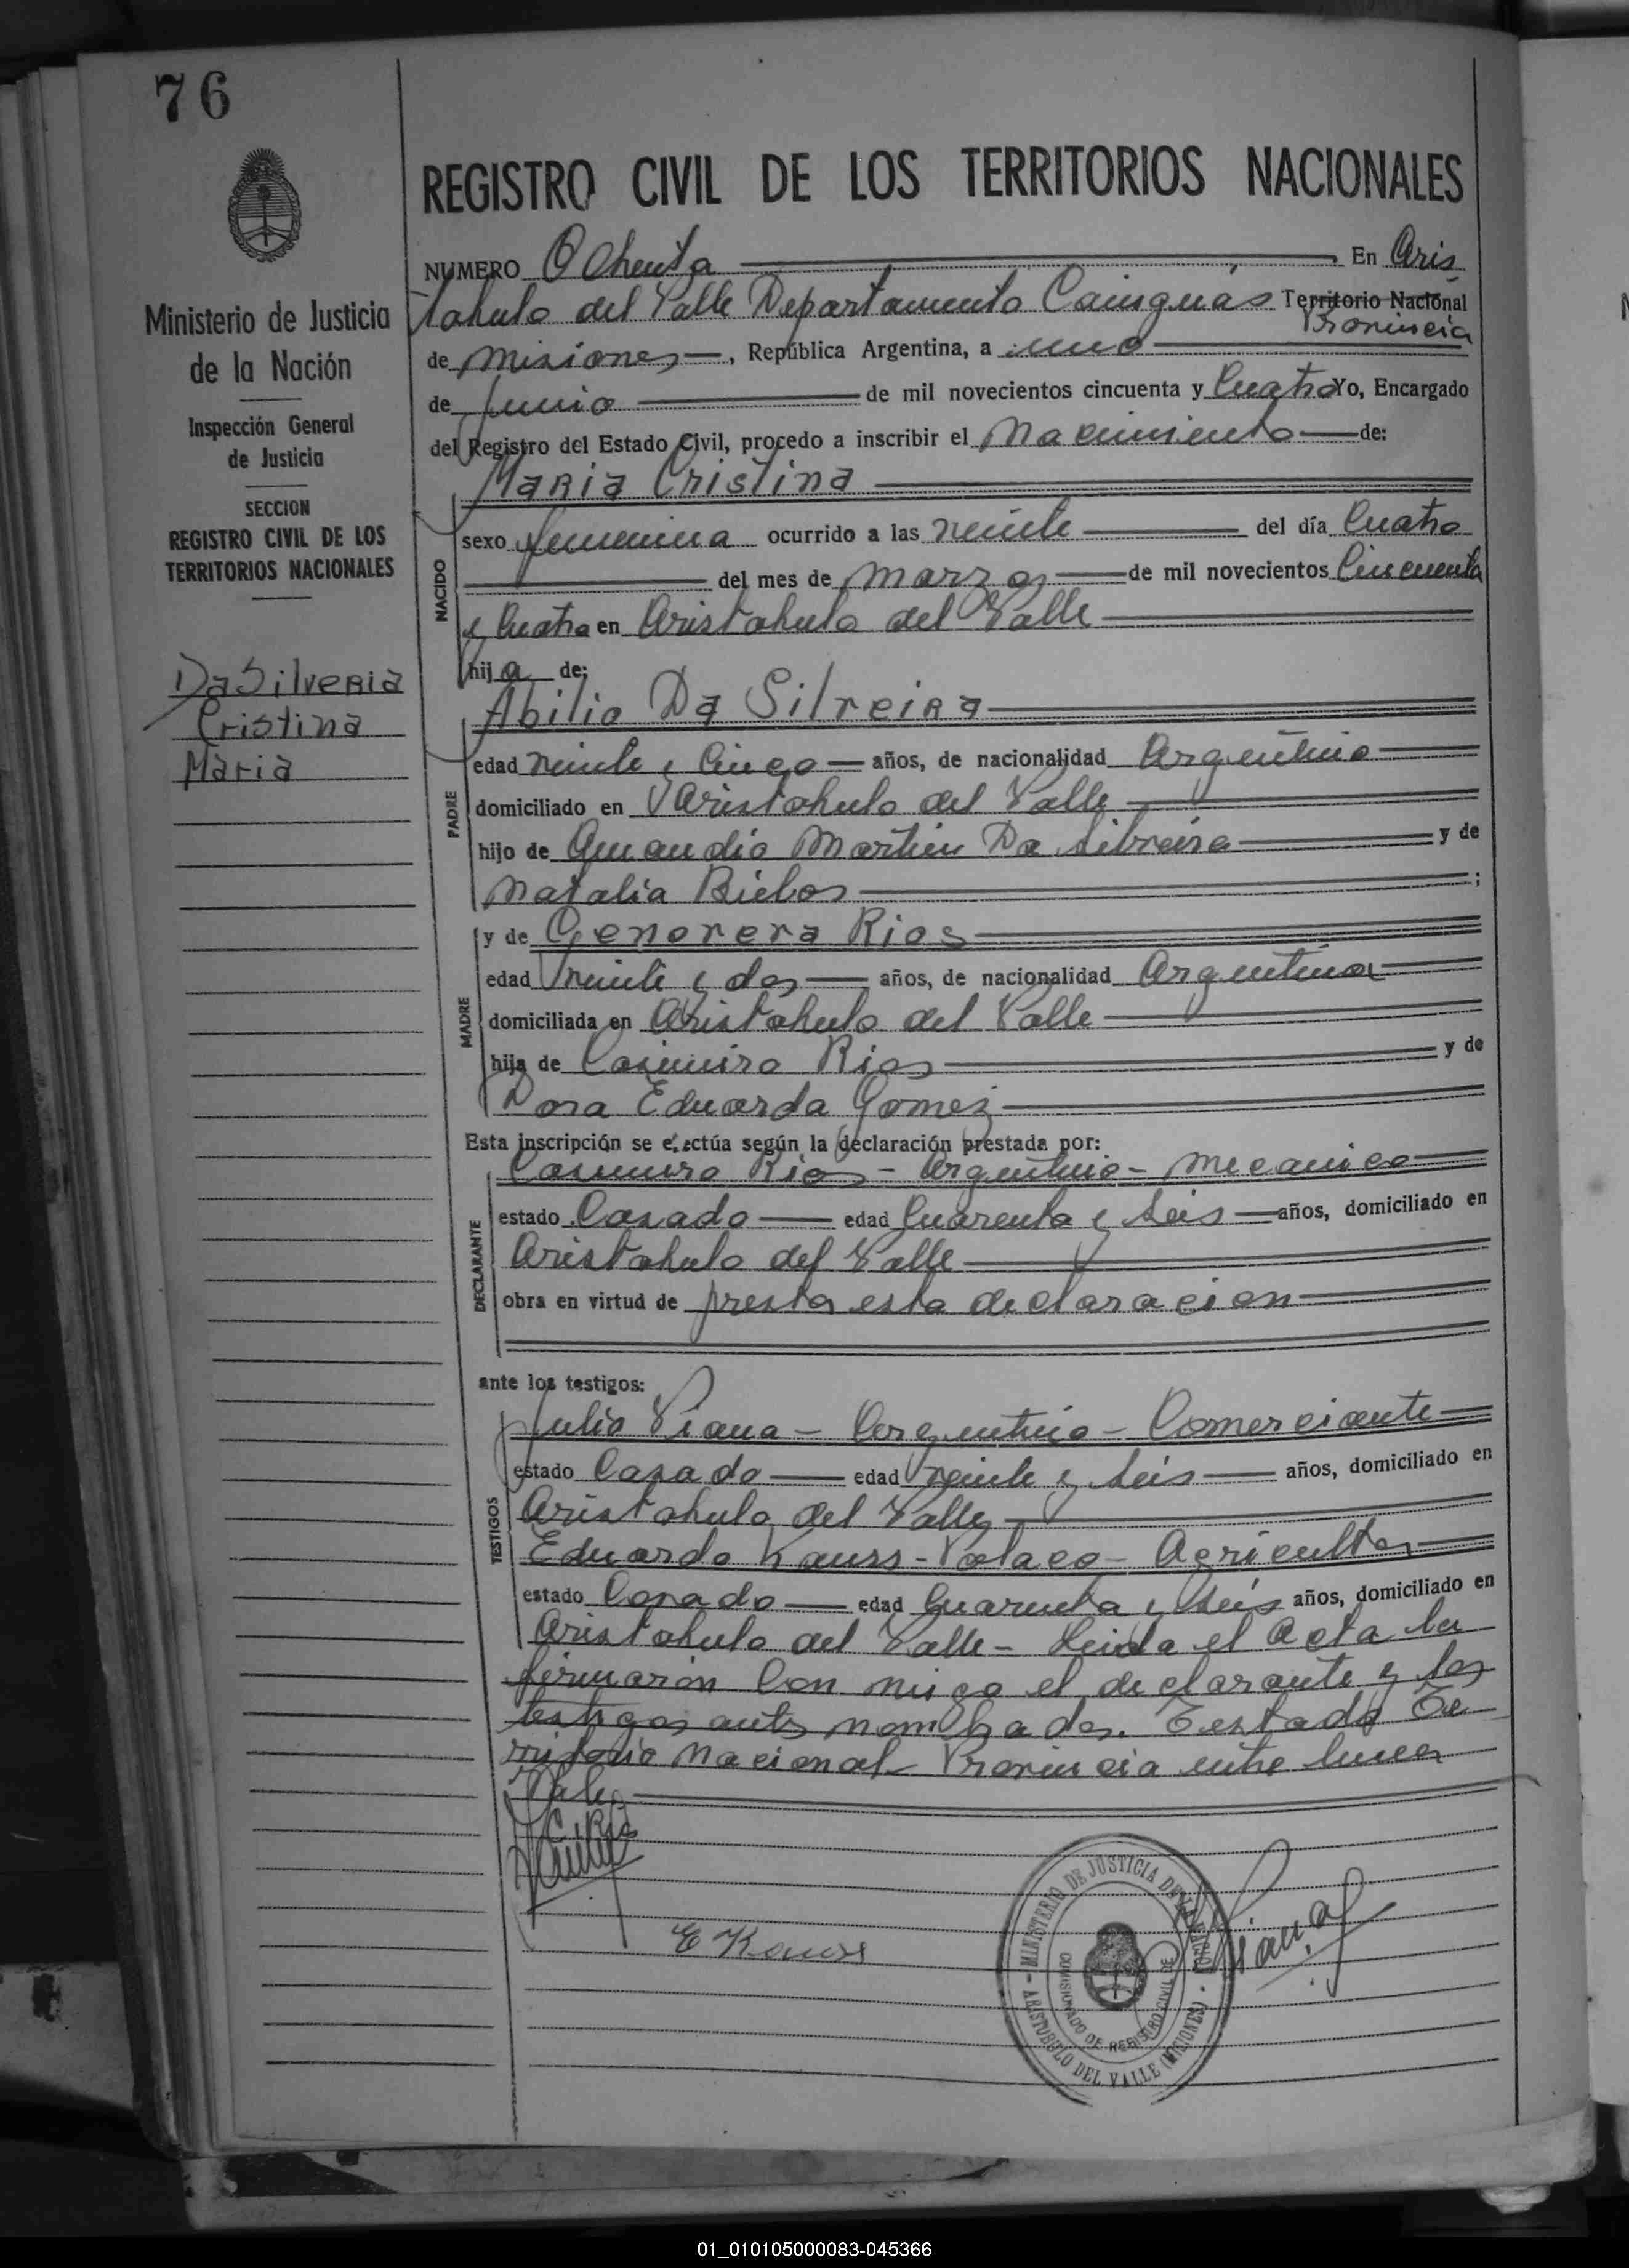 76
REGISTRO CIVIL DE LOS TERRITORIOS NACIONALES
Ministerio de Justicia
de la Nación
Inspección General
de Justicia
SECCION
REGISTRO CIVIL DE LOS
TERRITORIOS NACIONALES
DaSilveria
Cristina
Maria
NUMERO Ochenta En Aris
tobulo del Valle Departamento Cainguás Territorio Nacional
Provincia
de Misiones, República Argentina, a uno
de Junio de mil novecientos cincuenta y Cuatro Yo, Encargado
del Registro del Estado Civil, procedo a inscribir el Nacimiento de:
MARia Cristina
NACIDO
sexo femenina ocurrido a las veinte del día Cuatro
del mes de Marzo de mil novecientos Cincuenta
y Cuatro en Aristobulo del Valle
hija de:
Abilio Da Silveira
PADRE
edad veinte y Cinco años, de nacionalidad Argentino
domiciliado en Aristobulo del Valle
hijo de Amandio Martin Da Silveira y de
Natalia Bielos ;
MADRE
y de Genoveva Rios
edad veinte y dos años, de nacionalidad Argentina
domiciliada en Aristobulo del Valle
hija de Casimiro Rios y de
Dora Eduarda Gomez
Esta inscripción se efectúa según la declaración prestada por:
DECLARANTE
Casimiro Rios - Argentino - Mecanico
estado Casado edad Cuarenta y Seis años, domiciliado en
Aristobulo del Valle
obra en virtud de presta esta declaracion
ante los testigos:
TESTIGOS
Julio Viana - Argentino - Comerciante
estado Casado edad veinte y Seis años, domiciliado en
Aristobulo del Valle
Eduardo Kauss - Polaco - Agricultor
estado Casado edad Cuarenta y Seis años, domiciliado en
Aristobulo del Valle - Leida el Acta la
firmaron Con migo el declarante y los
testigos antes nombrados. Testado Te
rritorio Nacional - Provincia entre linea
Vale
C. Rios
E Kauss
MINISTERIO DE JUSTICIA DE LA NACION - ARISTOBULO DEL VALLE (MISIONES) -
COMISIONADO DE REGISTRO CIVIL DE
01_010105000083-045366